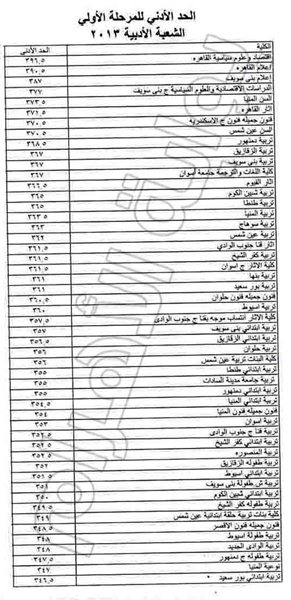 الحد الأدني للمرحلة الأولي
الشعبة الأدبية ٢٠١٣
الكلية الحد الأدنى
اقتصاد وعلوم سياسية القاهره ٣٩٦.٥
اعلام القاهره ٣٩٠.٥
اعلام بنى سويف ٣٨٧
الدراسات الاقتصادية والعلوم السياسية ج بنى سويف ٣٧٧
السن المنيا ٣٧٣.٥
اثار القاهره ٣٧١.٥
فنون جميله فنون ج الاسكندريه ٣٧٠.٥
السن عين شمس ٣٧٠.٥
تربية دمنهور ٣٦٨.٥
تربية الزقازيق ٣٦٧
تربية بنى سويف ٣٦٧
كلية اللغات والترجمة جامعة أسوان ٣٦٧
اثار الفيوم ٣٦٦.٥
تربية شبين الكوم ٣٦٥
تربية طنطا ٣٦٥
تربية المنيا ٣٦٥
تربية سوهاج ٣٦٣.٥
تربية عين شمس ٣٦٢
اثار قنا ج جنوب الوادي ٣٦١.٥
تربية كفر الشيخ ٣٦١.٥
كلية الاثار ج اسوان ٣٦١.٥
تربية بنها ٣٦١
تربية بور سعيد ٣٦١
فنون جميله فنون حلوان ٣٦٠.٥
تربية اسيوط ٣٦٠
كلية الاثار انتساب موجه بقنا ج جنوب الوادى ٣٥٧.٥
تربية ابتدائي بنى سويف ٣٥٧
تربية ابتدائي الزقازيق ٣٥٦.٥
تربية حلوان ٣٥٦
كلية البنات تربية عين شمس ٣٥٦
تربية ابتدائي طنطا ٣٥٥
تربية جامعة مدينة السادات ٣٥٥
تربية ابتدائي دمنهور ٣٥٥
تربية ابتدائي المنيا ٣٥٤.٥
فنون جميله فنون المنيا
تربية قنا ج جنوب الوادى ٣٥٢.٥
تربية ابتدائي كفر الشيخ ٣٥٢.٥
تربية المنصوره ٣٥٢
تربية طفوله الزقازيق ٣٥٢
تربية ابتدائي اسيوط ٣٥١
تربية ش طفوله بنى سويف ٣٥١
تربية ابتدائي شبين الكوم ٣٥٠
تربية طفوله كفر الشيخ ٣٤٩.٥
كلية بنات تربية حلقة ابتدائية عين شمس ٣٤٩
فنون جميله فنون الاقصر ٣٤٩
تربية طفولة اسيوط ٣٤٨
تربية الوادى الجديد ٣٤٨
تربية طفوله ج دمنهور ٣٤٧.٥
نوعية المنيا ٣٤٧
تربية ابتدائي بور سعيد ٣٤٦.٥
بوابة الأهرام